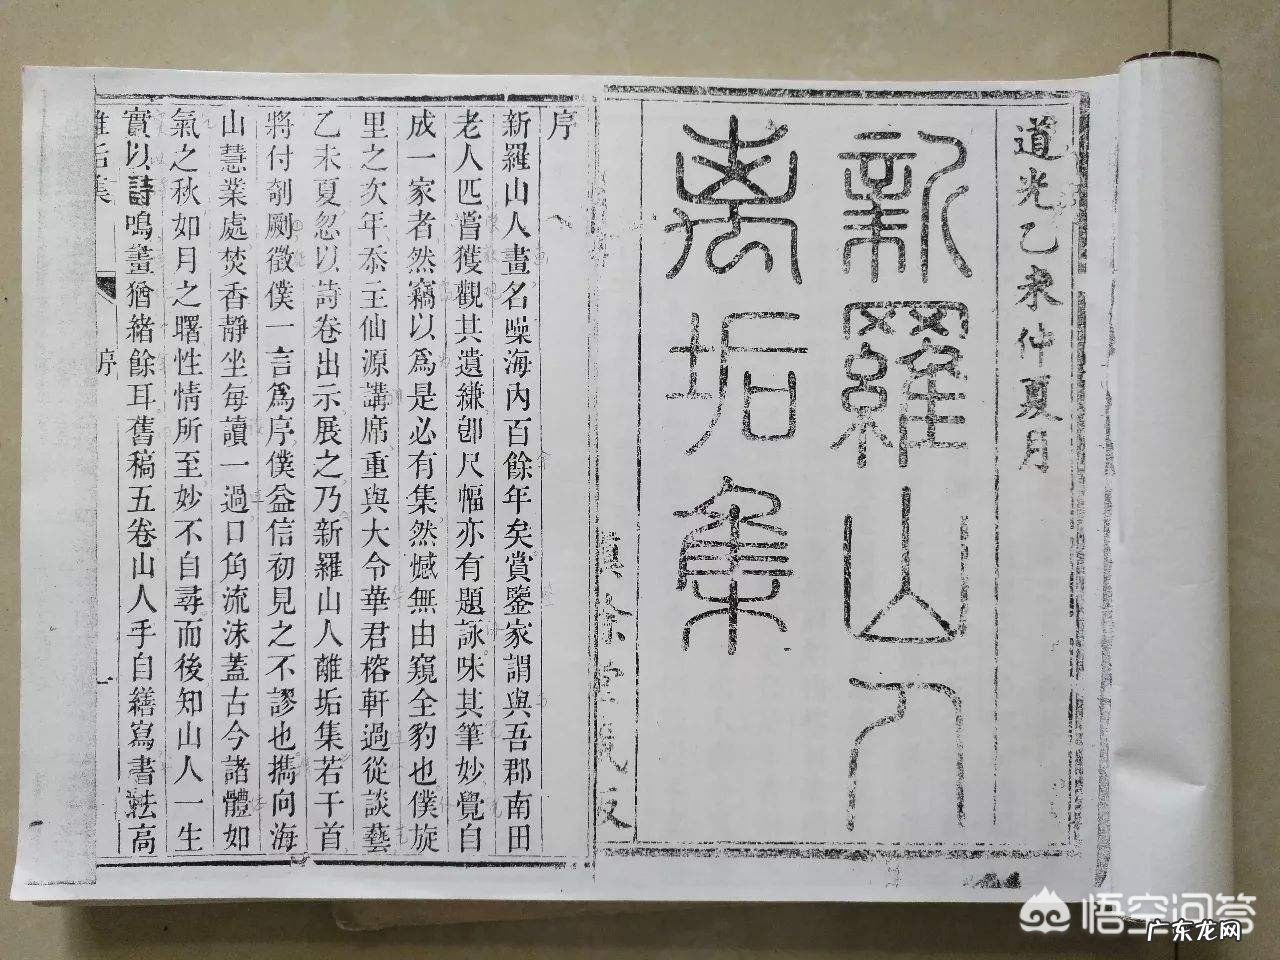 道光乙未仲夏月
新羅山人
离垢集
慎餘堂藏板
序
新羅山人畫名噪海内百餘年矣賞鑒家謂與吾郡南田
老人匹嘗獲觀其遺縑卽尺幅亦有題詠味其筆妙覺自
成一家者然竊以爲是必有集然憾無由窺全豹也僕旋
里之次年忝主仙源講席重與大令華君榕軒過從談藝
乙未夏忽以詩卷出示展之乃新羅山人離垢集若干首
將付剞劂徵僕一言爲序僕益信初見之不謬也攜向海
山慧業處焚香靜坐每讀一過口角流沫蓋古今諸體如
氣之秋如月之曙性情所至妙不自尋而後知山人一生
實以詩鳴畫猶緒餘耳舊稿五卷山人手自繕寫書法高
離垢集
序
一
悟空问答
广东龙网